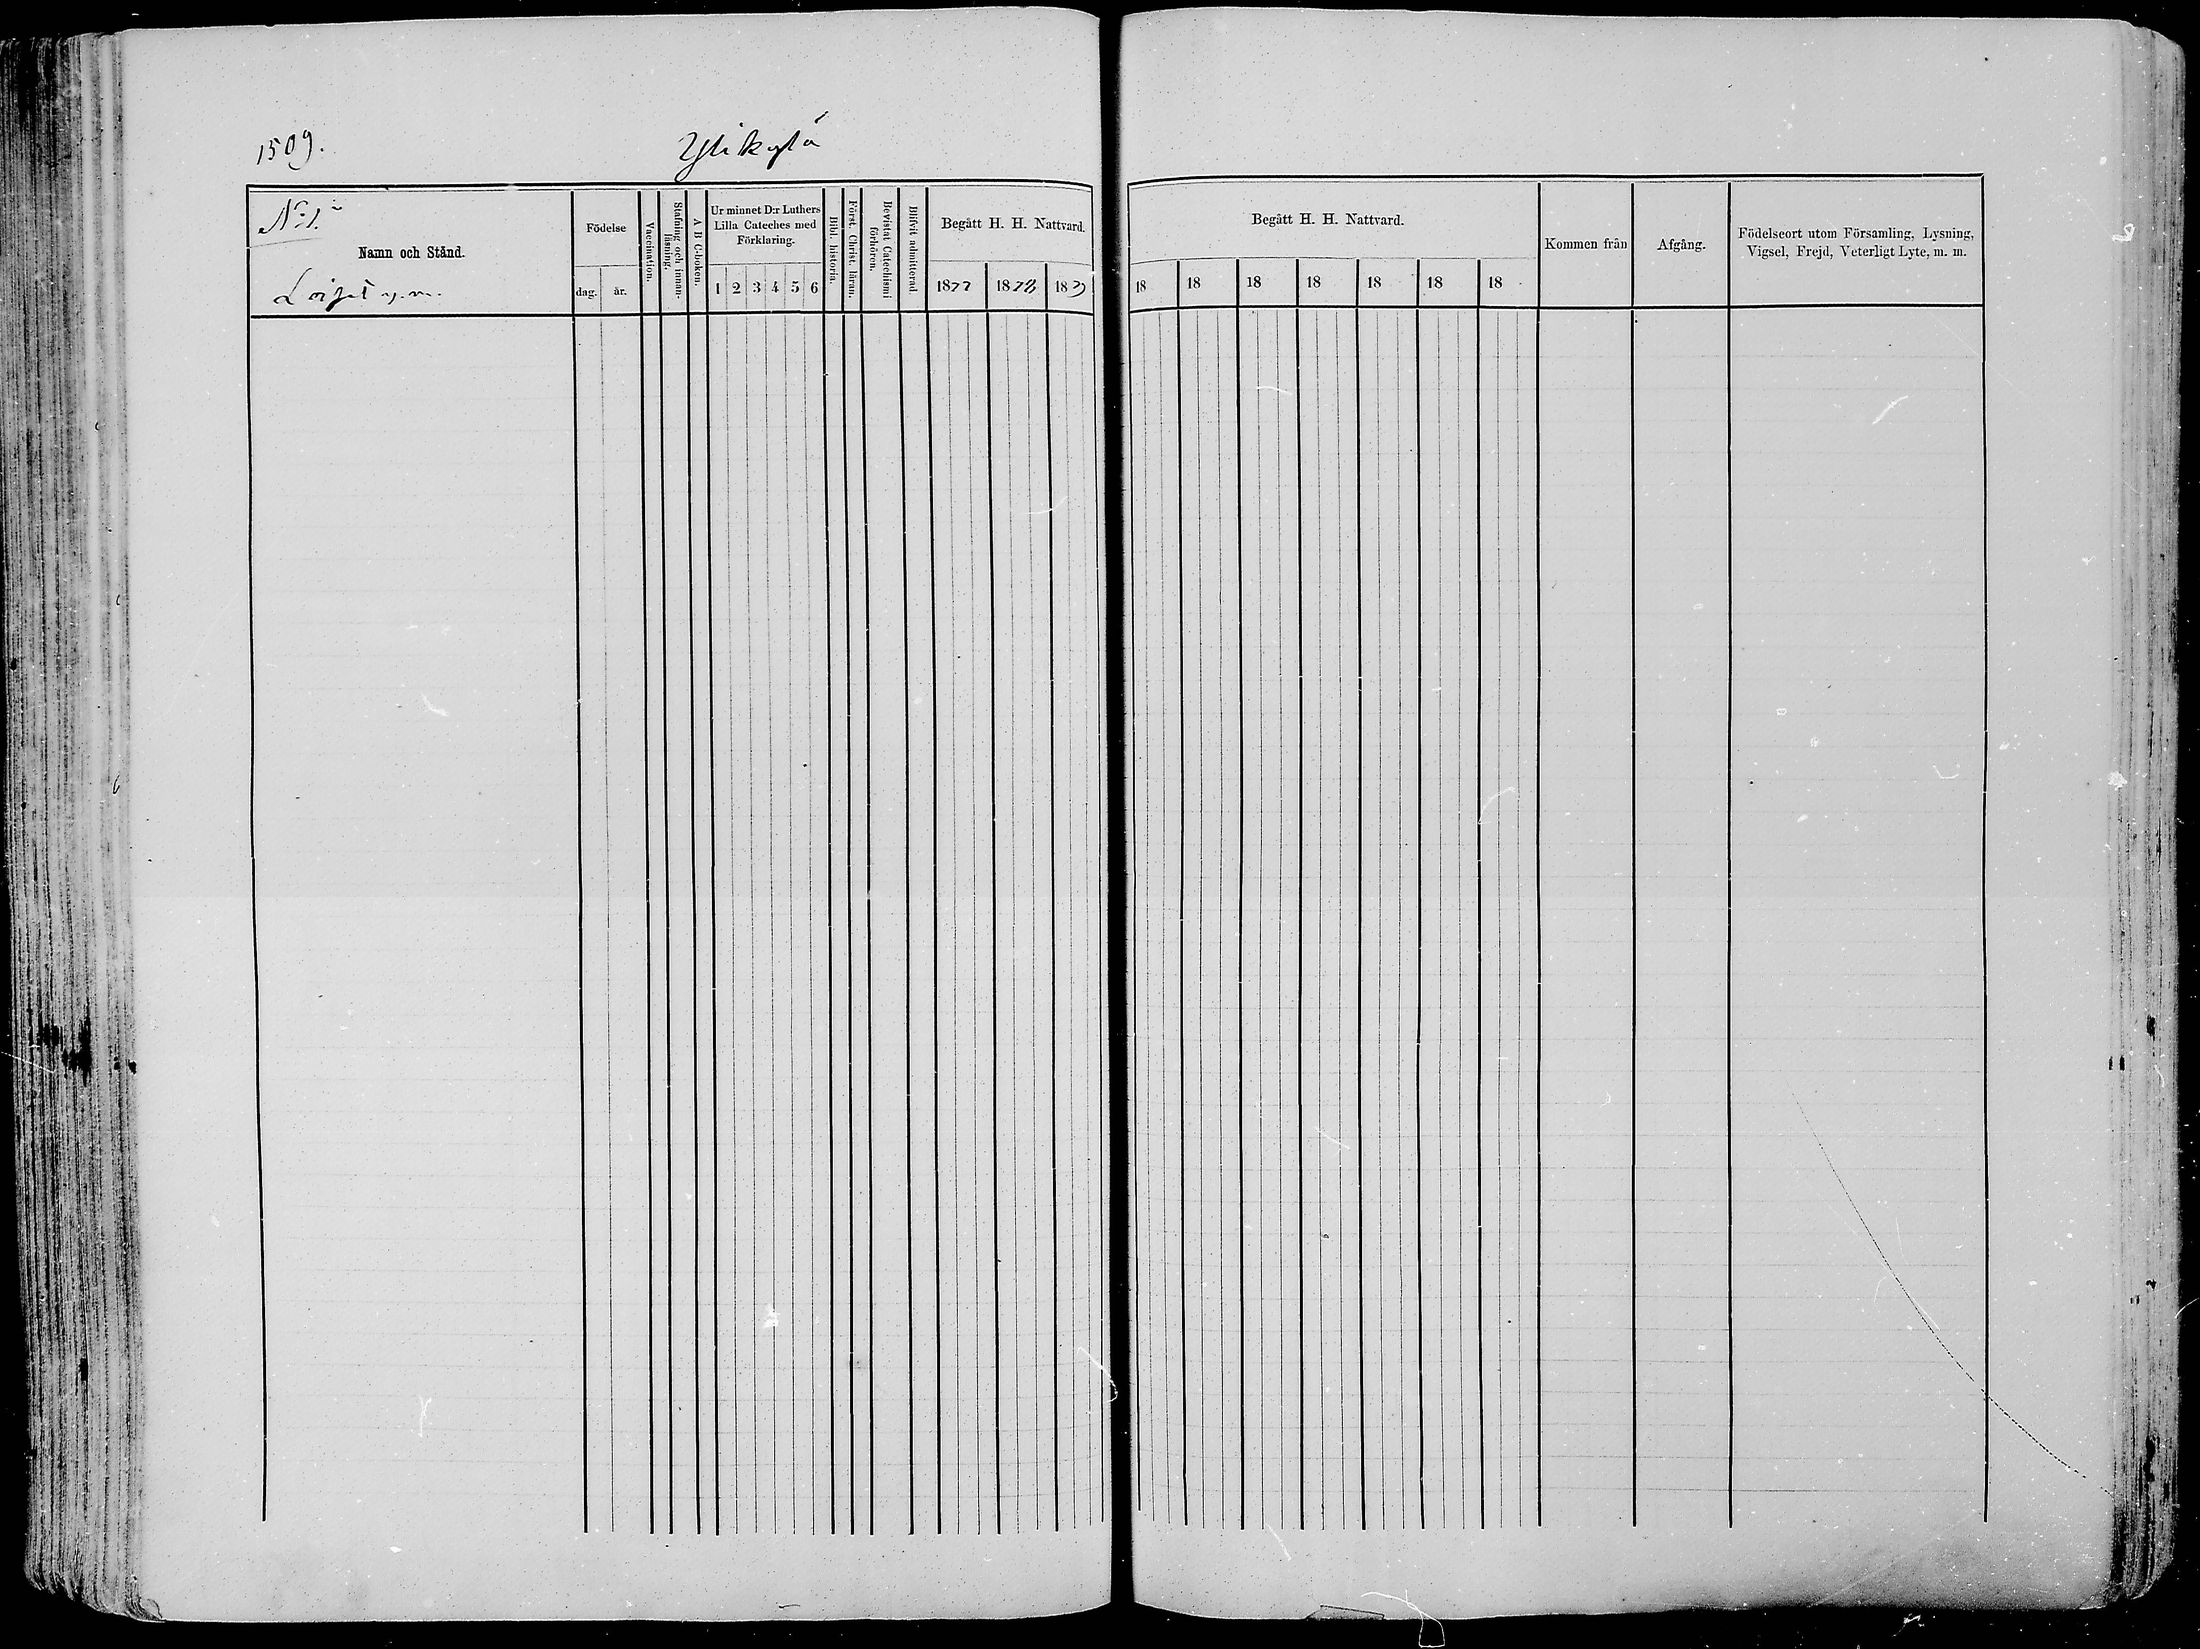 1509.
Ylikylä
No 1.
Namn och Stånd.
Födelse
dag.
år.
Vaccination.
Stafning och innan-
läsning.
A B C-boken.
Ur minnet D:r Luthers
Lilla Cateches med
Förklaring.
1 2 3 4 5 6
Bibl. historia.
Först. Christ. läran.
Bevistat Catechismi
förhören.
Blifvit admitterad.
Begått H. H. Nattvard.
1877 1878 18
Begått H. H. Nattvard.
18 18 18 18 18 18 18
Kommen från
Afgång.
Födelseort utom Församling, Lysning,
Vigsel, Frejd, Veterligt Lyte, m. m.